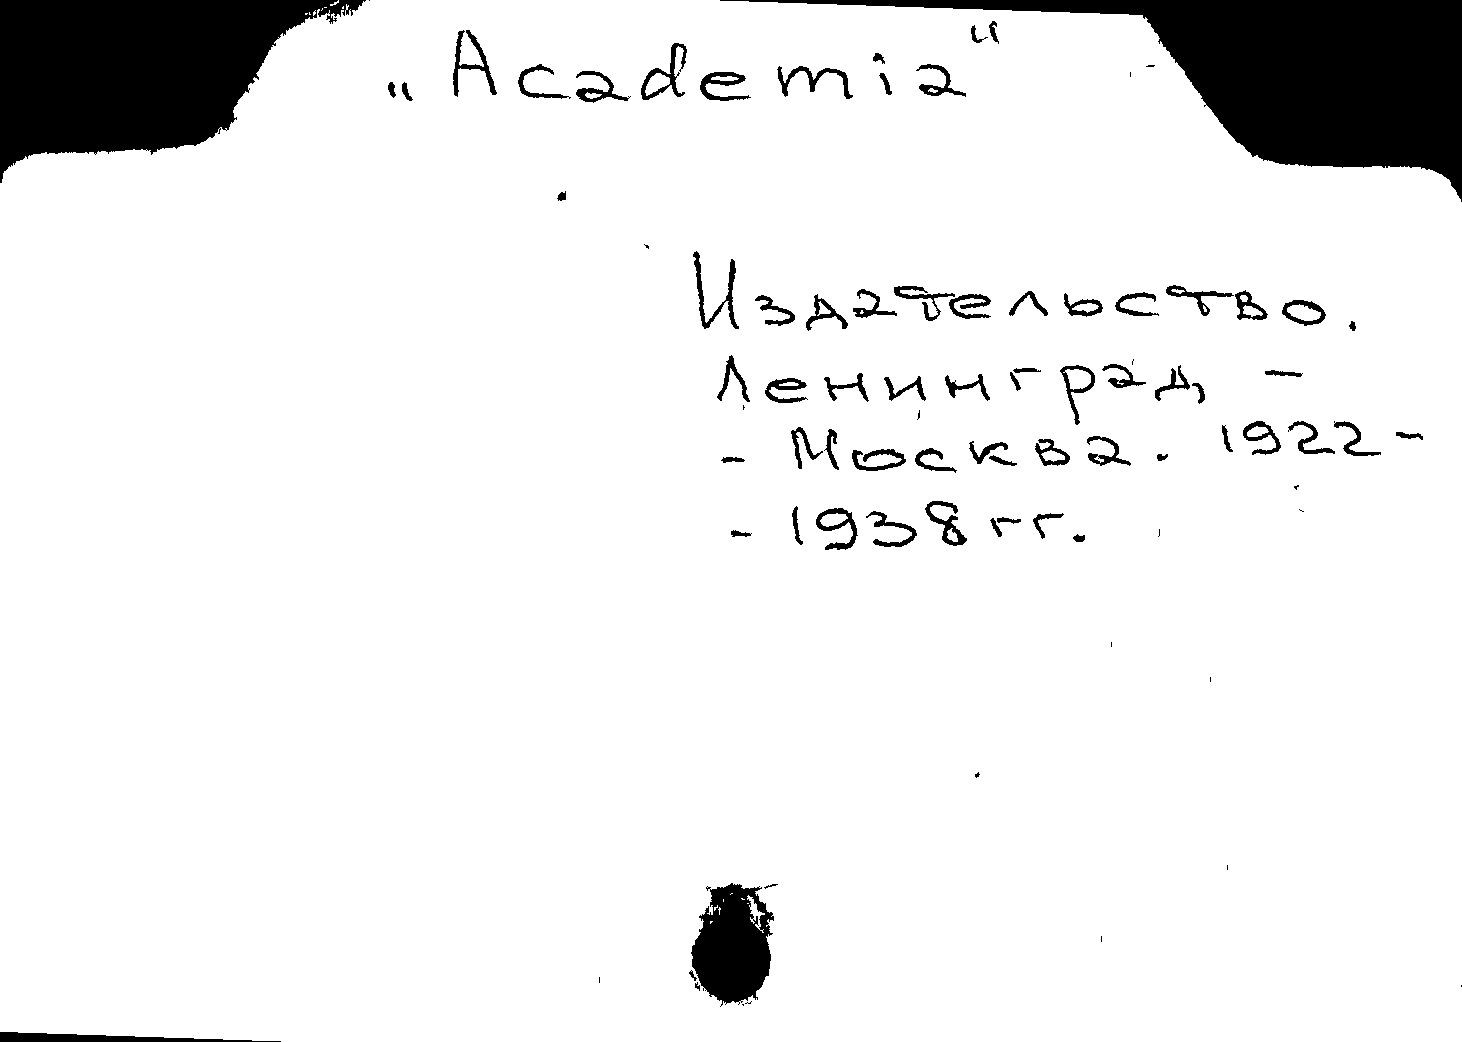 „Academia“
Издательство.
Ленинград –
- Москва. 1922 -
- 1938 гг.